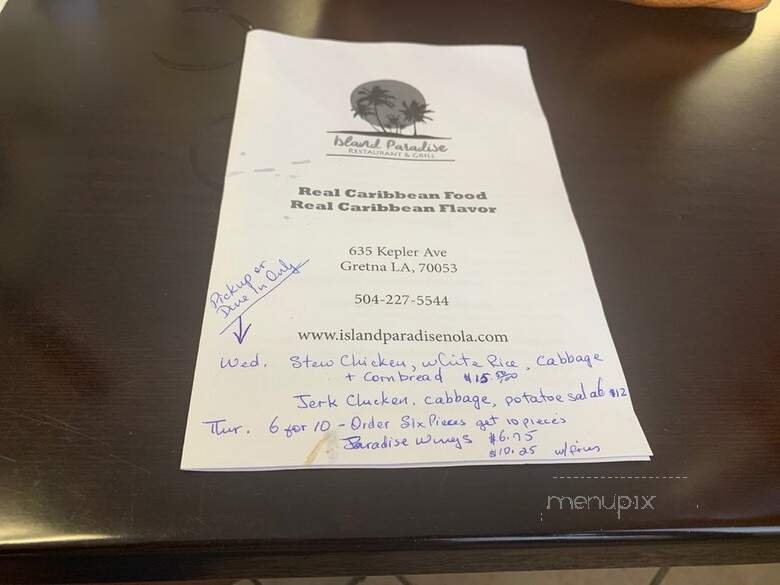 Island Paradise
RESTAURANT & GRILL
Real Caribbean Food
Real Caribbean Flavor
635 Kepler Ave
Gretna LA, 70053
504-227-5544
www.islandparadisenola.com
Pickup or
Dine In Only
Wed. Stew Chicken, white Rice, Cabbage
+ Cornbread $15.
Jerk Chicken, Cabbage, potatoe salad $12
Thur. 6 for 10 - Order Six Pieces get 10 pieces
Paradise Wings $6.75
$10.25 w/fries
menupix